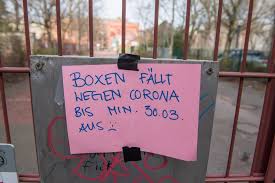 BOXEN FÄLLT
WEGEN CORONA
BIS MIN. 30.03.
AUS